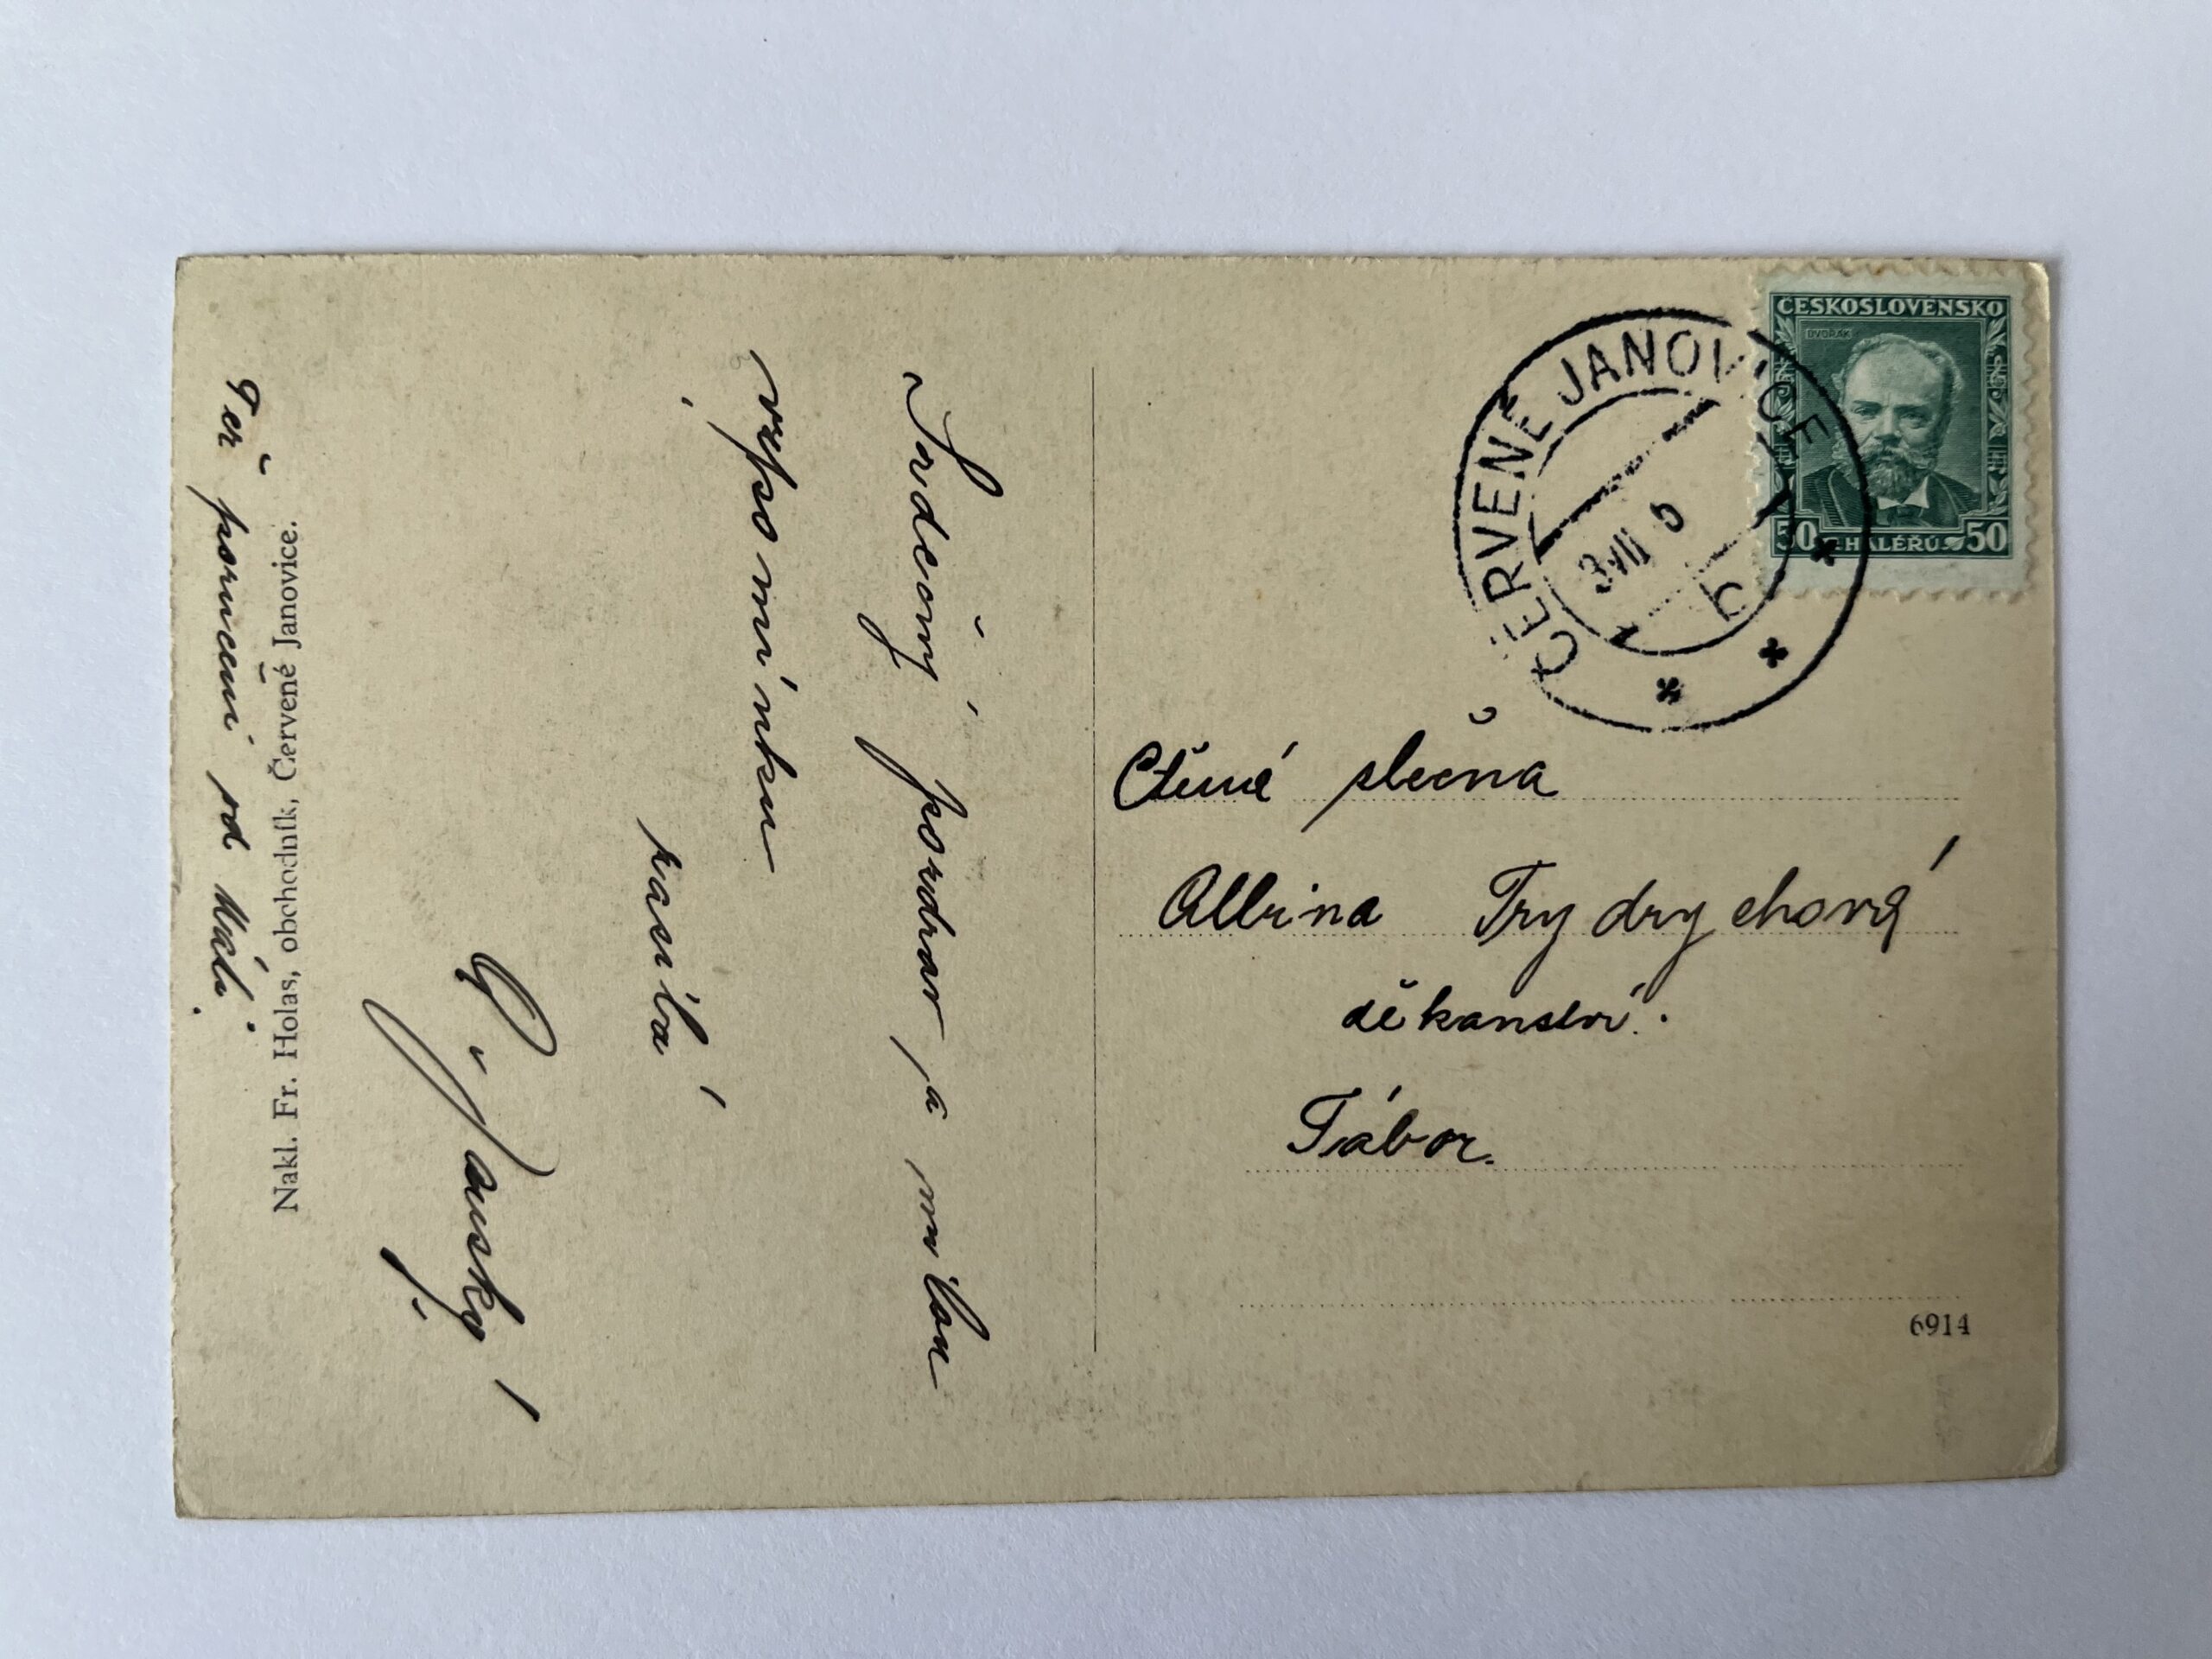 ČESKOSLOVENSKO
DVOŘÁK
50 HALÉŘŮ 50
ČERVENÉ JANOVICE
3 VII
Ctěná slečna
Albina Trydrychová
děkanství.
Tábor.
6914
Srdečný pozdrav a milou
vzpomínku
zasílá
Též poručení od
Nakl. Fr. Holas, obchodník, Červené Janovice.